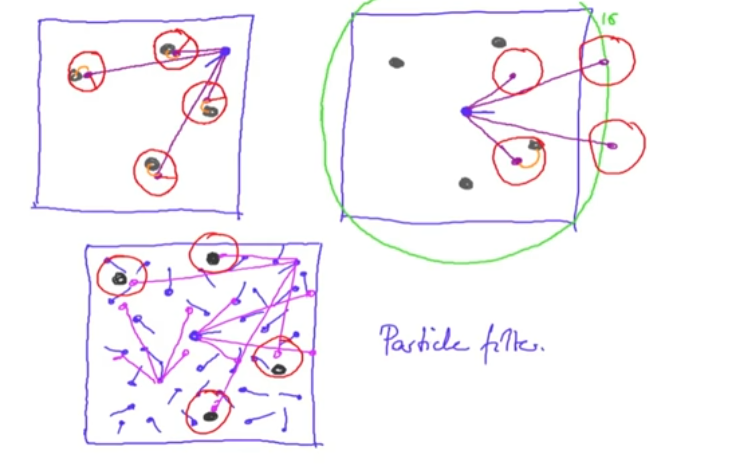 16
Particle filter.